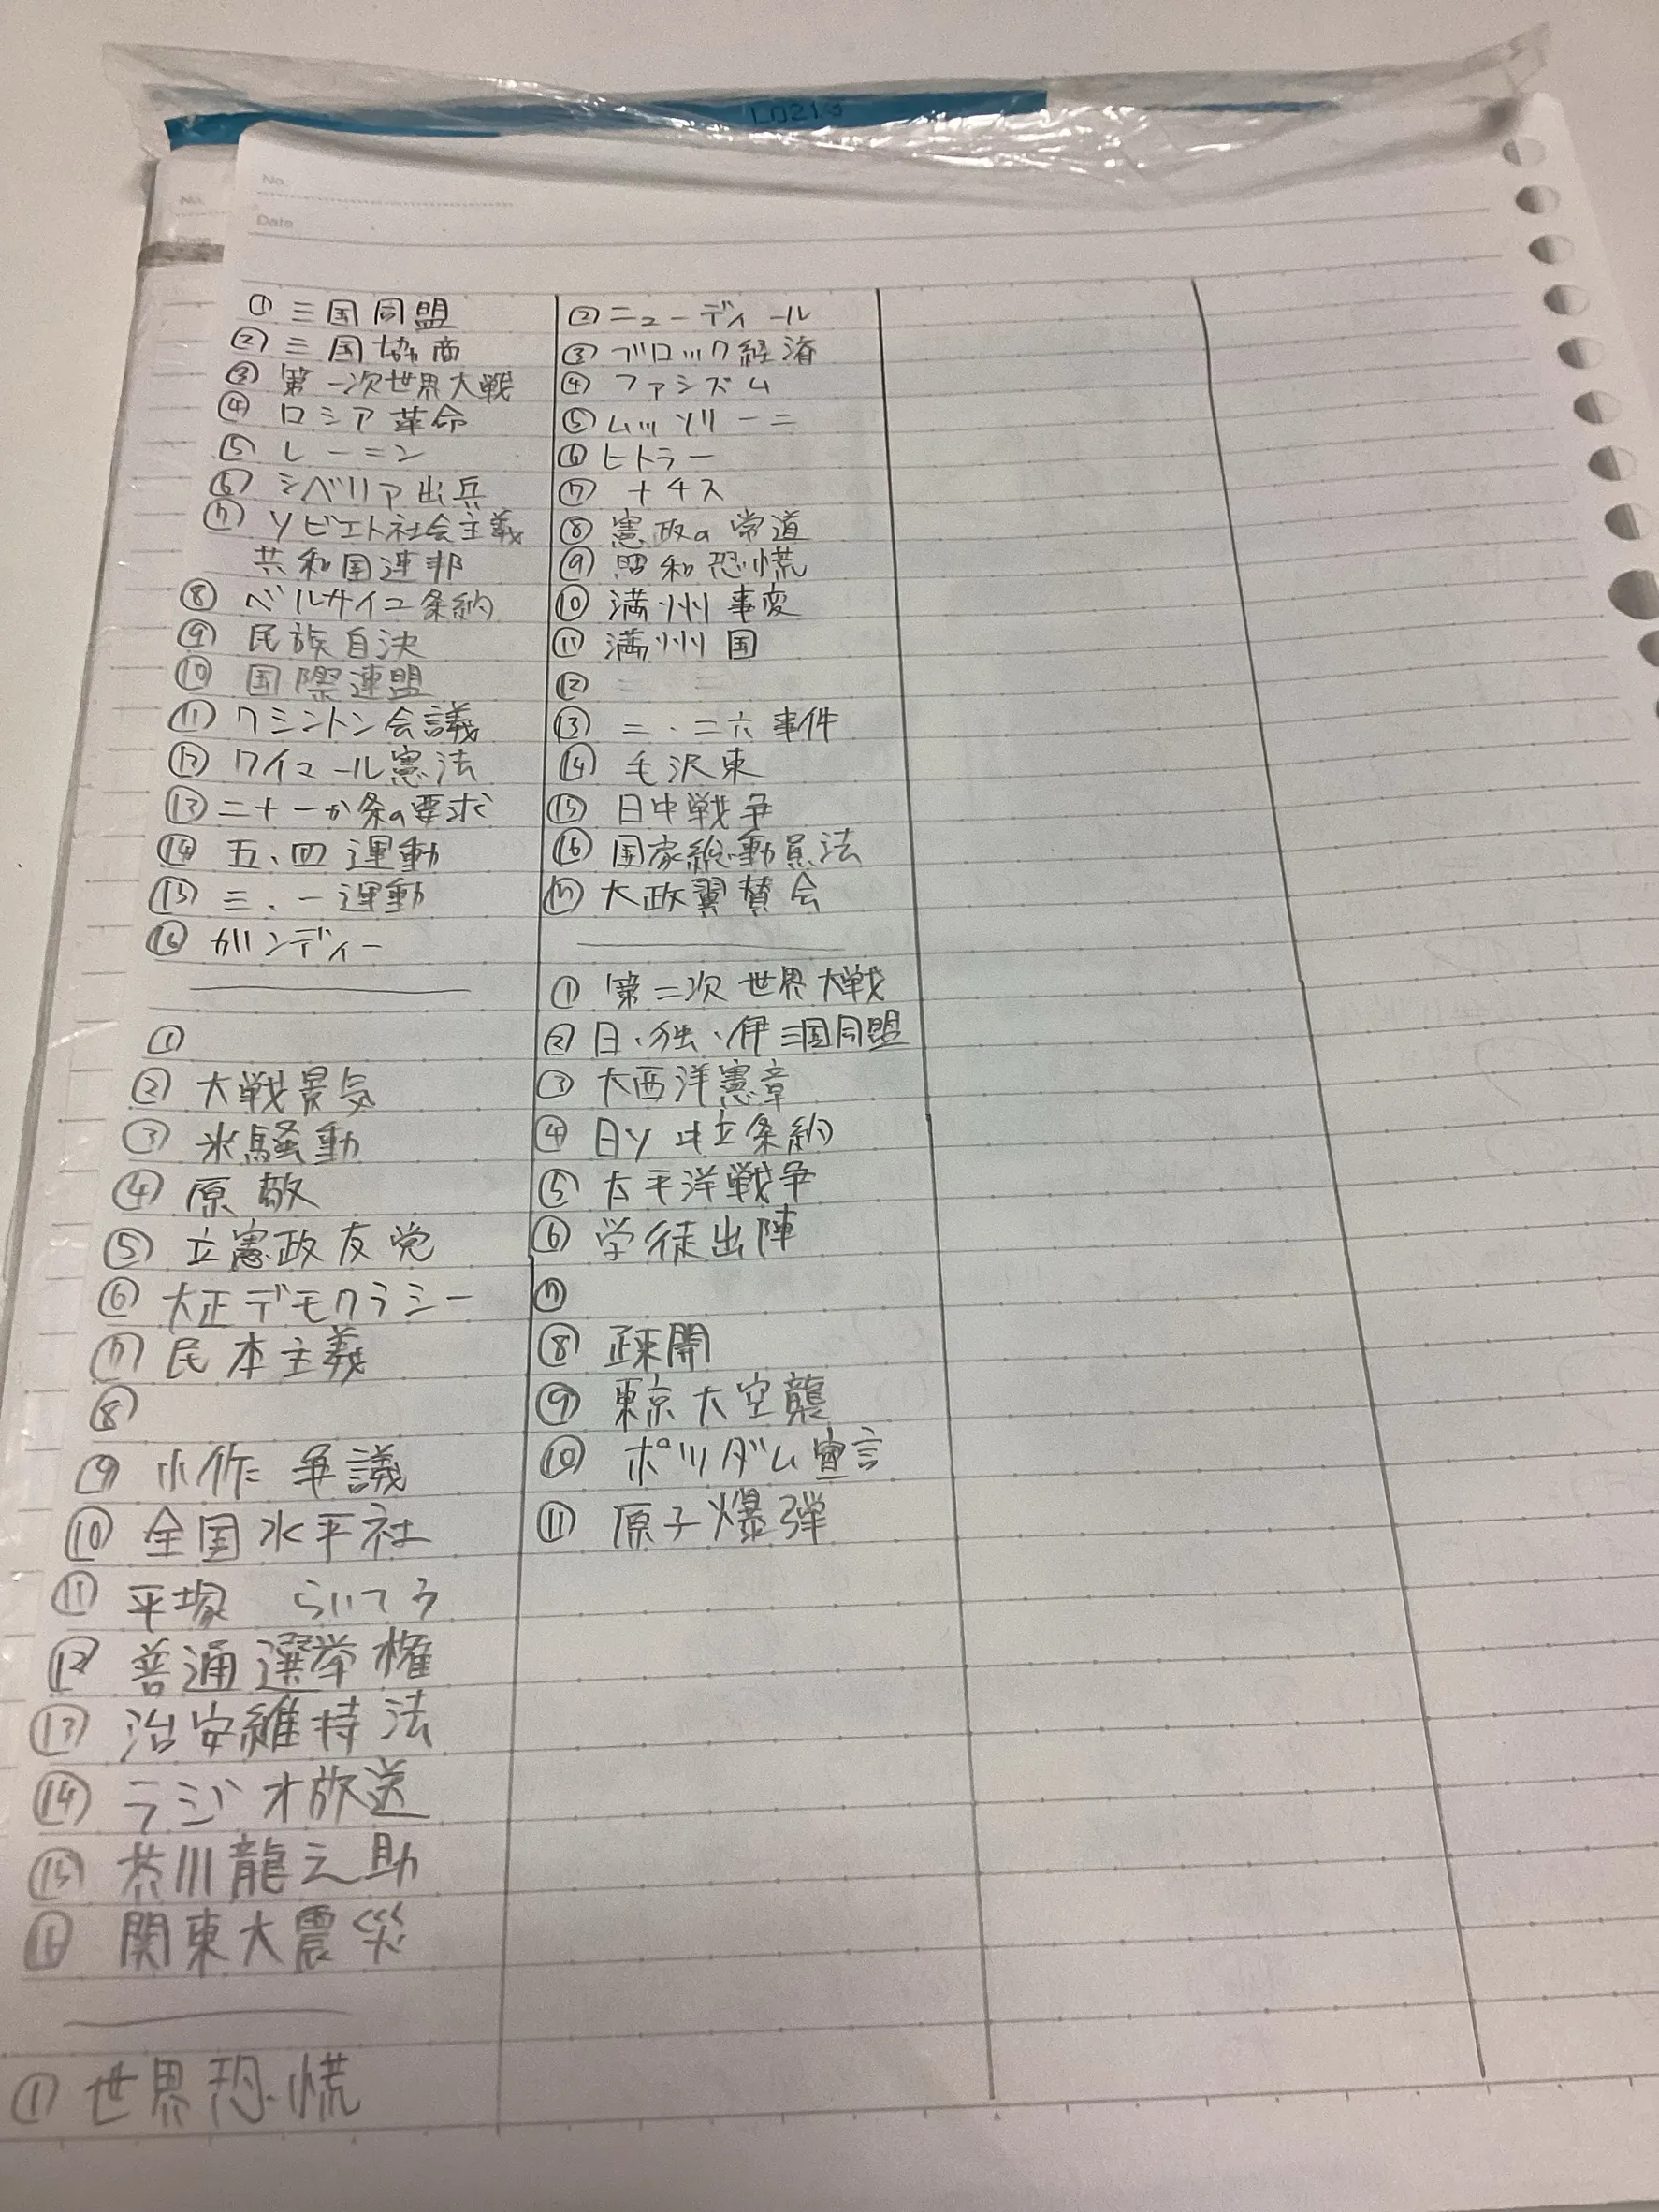 L0213
No.
Date
No.
① 三国同盟
② 三国協商
③ 第一次世界大戦
④ ロシア革命
⑤ レーニン
⑥ シベリア出兵
⑦ ソビエト社会主義
共和国連邦
⑧ ベルサイユ条約
⑨ 民族自決
⑩ 国際連盟
⑪ ワシントン会議
⑫ ワイマール憲法
⑬ 二十一か条の要求
⑭ 五、四運動
⑮ 三、一運動
⑯ ガンディー
①
② 大戦景気
③ 米騒動
④ 原敬
⑤ 立憲政友党
⑥ 大正デモクラシー
⑦ 民本主義
⑧
⑨ 小作争議
⑩ 全国水平社
⑪ 平塚 らいてう
⑫ 普通選挙権
⑬ 治安維持法
⑭ ラジオ放送
⑮ 芥川龍之助
⑯ 関東大震災
① 世界恐慌
② ニューディール
③ ブロック経済
④ ファシズム
⑤ ムッソリーニ
⑥ ヒトラー
⑦ ナチス
⑧ 憲政の常道
⑨ 昭和恐慌
⑩ 満州事変
⑪ 満州国
⑫
⑬ 二・二六事件
⑭ 毛沢東
⑮ 日中戦争
⑯ 国家総動員法
⑰ 大政翼賛会
① 第二次世界大戦
② 日・独・伊三国同盟
③ 大西洋憲章
④ 日ソ中立条約
⑤ 太平洋戦争
⑥ 学徒出陣
⑦
⑧ 疎開
⑨ 東京大空襲
⑩ ポツダム宣言
⑪ 原子爆弾